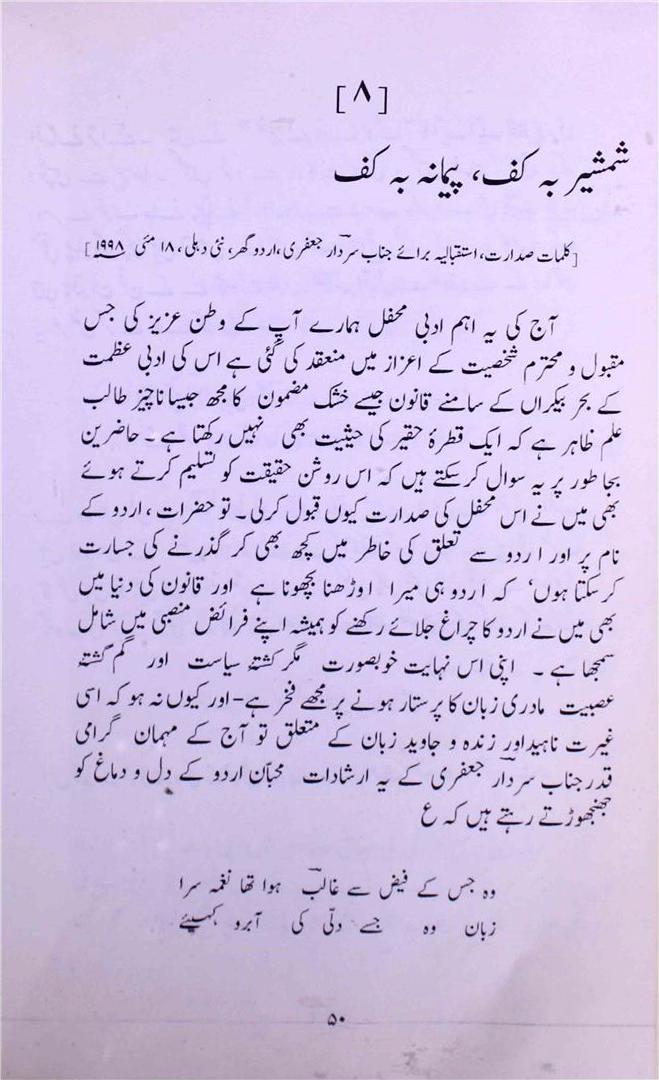 [۸]
شمشیر بہ کف، پیمانہ بہ کف
[کلمات صدارت، استقبالیہ برائے جناب سردار جعفری، اردو گھر، نئی دہلی، ۱۸ مئی ۱۹۹۸]
آج کی یہ اہم ادبی محفل ہمارے آپ کے وطن عزیز کی جس
مقبول و محترم شخصیت کے اعزاز میں منعقد کی گئی ہے اس کی ادبی عظمت
کے بحر بیکراں کے سامنے قانون جیسے خشک مضمون کا مجھ جیسا ناچیز طالب
علم ظاہر ہے کہ ایک قطرۂ حقیر کی حیثیت بھی نہیں رکھتا ہے۔ حاضرین
بجا طور پر یہ سوال کر سکتے ہیں کہ اس روشن حقیقت کو تسلیم کرتے ہوئے
بھی میں نے اس محفل کی صدارت کیوں قبول کر لی۔ تو حضرات، اردو کے
نام پر اور اردو سے تعلق کی خاطر میں کچھ بھی کر گذرنے کی جسارت
کر سکتا ہوں، کہ اردو ہی میرا اوڑھنا بچھونا ہے اور قانون کی دنیا میں
بھی میں نے اردو کا چراغ جلائے رکھنے کو ہمیشہ اپنے فرائض منصبی میں شامل
سمجھا ہے۔ اپنی اس نہایت خوبصورت مگر کشتۂ سیاست اور گم گشتۂ
عصبیت مادری زبان کا پرستار ہونے پر مجھے فخر ہے- اور کیوں نہ ہو کہ اسی
غیرت ناہید اور زندہ و جاوید زبان کے متعلق تو آج کے مہمان گرامی
قدر جناب سردار جعفری کے یہ ارشادات محبّان اردو کے دل و دماغ کو
جھنجھوڑتے رہتے ہیں کہ ع
وہ جس کے فیض سے غالب ہوا تھا نغمہ سرا
زبان وہ جسے دلّی کی آبرو کہیئے
۵۰